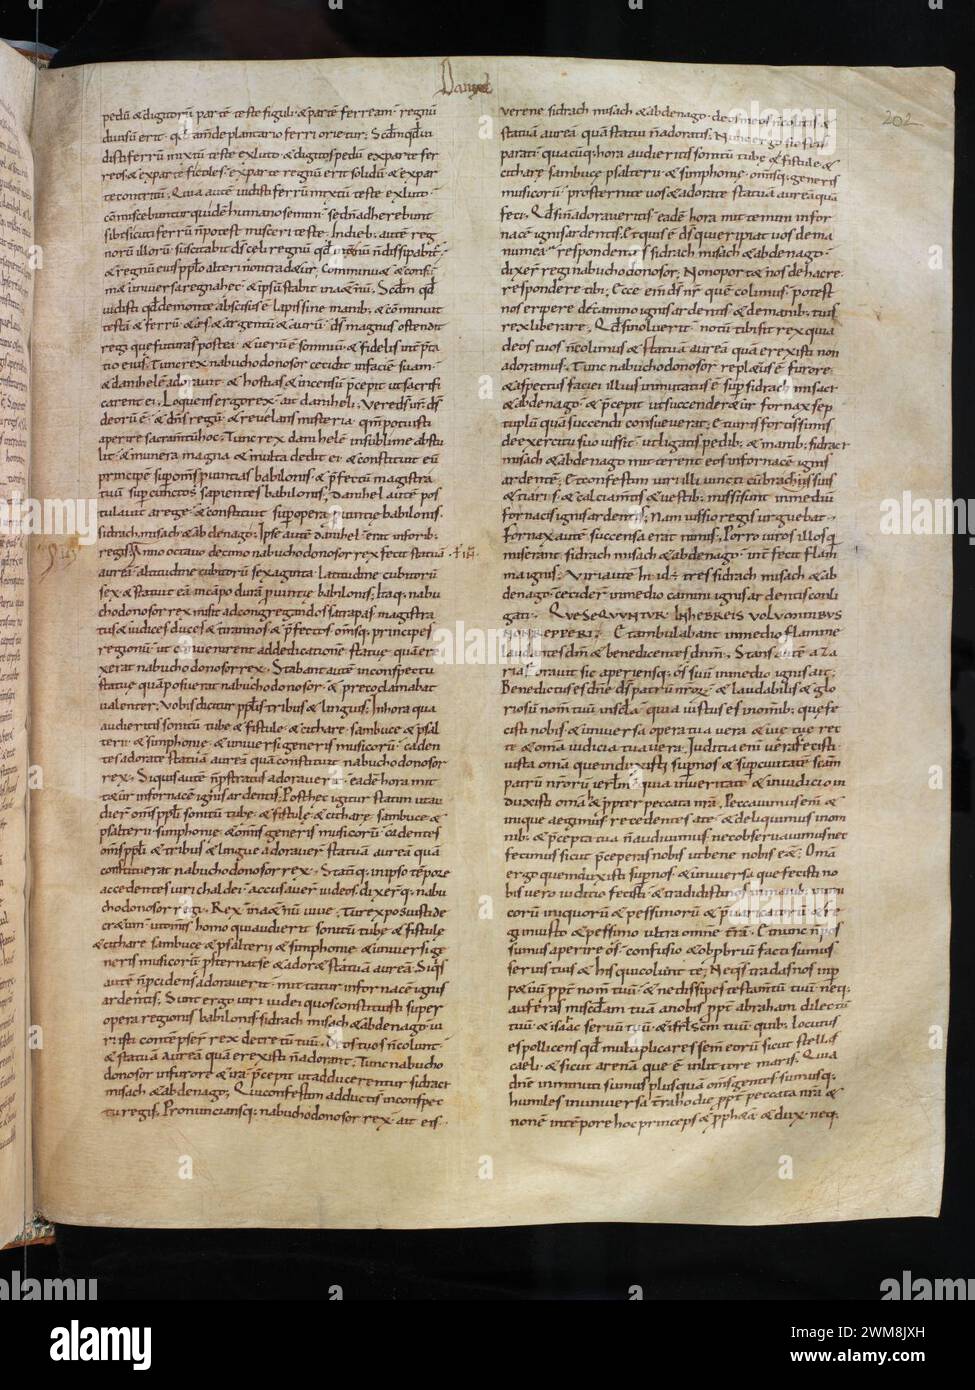 Danyel
202
pedū & digitorū partē testę figuli · & partē ferream · regnū
diuisū erit · qđ tam̄ de plantario ferri orietur ; Scdm̄ qđ ui
disti ferrū mixtū testę ex luto · & digitos pedū ex parte fer
reos & ex parte fictiles · ex parte regnū erit solidū · & ex par
te contritū ; Quia autē uidisti ferrū mixtū testę ex luto ·
cōmiscebuntur quidē humano semini · sed n̄ adherebunt
sibi sicuti ferrū n̄ potest misceri testę · In dieb; autē reg
norū illorū suscitabit ds̄ celi regnū qđ in et̄nū n̄ dissipabit̄ ·
& regnū eius pplo alteri non trad&ur ; Comminu& & cons
m& uniuersa regna hęc · & ipsū stabit in &̄nū ; Scdm̄ qđ
uidisti qđ de monte abscisus ē lapis sine manib; & cōminuit
testā & ferrū · & ęs & argentū & aurū · ds̄ magnus ostendit
regi quę futura s̄ postea · & uerū ē somniū · & fidelis int̄p̄ta
tio eius ; Tunc rex nabuchodonosor cecidit in faciē suam ·
& danihelē adorauit · & hostias & incensū p̄cepit ut sacrifi
carent ei · Loquens ergo rex · ait daniheli ; Vere ds̄ ur̄ ds̄
deorū ē · & dn̄s regū · & reuelans misteria · qm̄ potuisti
aperire sacram̄tū hoc ; Tunc rex danihelē in sublime extu
lit · & munera magna & multa dedit ei · & constituit eū
principē sup om̄s p̄uintias babilonis · & p̄fectū magistra
tuū sup cunctos sapientes babilonis ; Danihel autē pos
tulauit a rege · & constituit sup opera p̄uintię babilonis ·
sidrach, misach & abdenago ; Ipse autē danihel erat in forib;
regis ; Anno octauo decimo nabuchodonosor rex fecit statuā
aureā · altitudine cubitorū sexaginta · latitudine cubitorū
sex · & statuit eā in cāpo dura p̄uintię babilonis ; Itaq; nabu
chodonosor rex misit ad congregandos satrapas · magistra
tus & iudices · duces & tirannos & p̄fectos om̄sq; principes
regionū · ut conuenirent ad dedicationē statuę quā ere
xerat nabuchodonosor rex · Stabant autē in conspectu
statuę quā posuerat nabuchodonosor · & preco clamabat
ualenter ; Vobis dicitur pplis tribus & linguis ; In hora qua
audieritis sonitū tubę & fistulę · & citharę · sambucę & psal
terii · & simphonię · & uniuersi generis musicorū · caden
tes adorate statuā aureā quā constituit nabuchodonosor
rex · Si quis autē n̄ p̄stratus adorauerit · eadē hora mit
t&ur in fornacē ignis ardentis ; Post hęc igitur statim ut au
dier̄ om̄s ppli sonitū tubę · & fistulę & citharę · sambucę &
psalterii · simphonię · & om̄is generis musicorū · cadentes
om̄s ppli & tribus & linguę adorauer̄ statuā aureā quā
constituerat nabuchodonosor rex · Statīq; in ipso tēpore
accedentes uiri chaldei · accusauer̄ iudeos · dixer̄q; nabu
chodonosor regi · Rex in &̄nū uiue · Tu rex posuisti de
cr&um · ut om̄is homo qui audierit sonitū tubę & fistulę
& citharę sambucę & psalterii & simphonię · & uniuersi ge
neris musicorū · p̄sternat se · & ador& statuā aureā · Siq̄s
autē n̄ p̄cidens adorauerit · mittatur in fornacē ignis
ardentis ; Sunt ergo uiri iudei quos constituisti super
opera regionis babilonis · sidrach misach & abdenago · ui
ri isti contēpser̄ rex decretū tuū · deos tuos n̄ colunt ·
& statuā aureā quā erexisti n̄ adorant ; Tunc nabucho
donosor in furore & in ira p̄cepit ut adducerentur sidrac
misach & abdenago ; Qui confestim adducti s̄ in conspec
tu regis ; Pronuncians q; nabuchodonosor rex · ait eis ·
uerene sidrach misach & abdenago · deos meos n̄ colitis &
statuā aureā quā statui n̄ adoratis ; Nunc ergo si estis
parati · quacūq; hora audieritis sonitū tubę & fistulę &
citharę sambucę psalterii & simphonię · om̄isq; generis
musicorū · prosternite uos & adorate statuā aureā quā
feci · Qđ si n̄ adoraueritis · eadē hora mittemini in for
nacē ignis ardentis · Et quis ē ds̄ qui eripiat uos de ma
nu mea · respondentes sidrach misach & abdenago ·
dixer̄ regi nabuchodonosor ; Non oport& nos de hac re
respondere tibi ; Ecce em̄ ds̄ nr̄ quē colimus · potest
nos eripere de camino ignis ardentis & de manib; tuis
rex liberare ; Qđ si noluerit · notū tibi sit rex quia
deos tuos n̄ colimus · & statuā aureā quā erexisti non
adoramus ; Tunc nabuchodonosor repl&us ē furore ·
& aspectus faciei illius inmutatus ē sup sidrach misac
& abdenago · & p̄cepit ut succender&ur fornax sep
tuplū quā succendi consueuerat · Et uiris fortissimis
de exercitu suo iussit · ut ligatis pedib; & manib; sidrac
misach & abdenago mitterent eos in fornacē ignis
ardentē · Et confestim uiri illi uincti cū bracis suis
& tiaris & calciam̄tis & uestib; missi sunt in mediū
fornacis ignis ardentis ; Nam iussio regis urguebat ·
Fornax autē succensa erat nimis ; Porro uiros illos q
miserant sidrach misach & abdenago · int̄fecit flam
ma ignis ; Viri autē hi · id ÷ tres sidrach misach & ab
denago · cecider̄ in medio camini ignis ardentis conli
gati · QUE SEQVVNTUR IN HEBREIS VOLVMINIBVS
NON REPPERI ; Et ambulabant in medio flammę
laudantes dm̄ & benedicentes dnm̄ · Stans autē aza
rias orauit sic · aperiensq; os suū in medio ignis ait ;
Benedictus es dn̄e ds̄ patrū nrōr̄ · & laudabilis & glo
riosū nom̄ tuū in scl̄a · quia iustus es in om̄ib; quę fe
cisti nobis · & uniuersa opera tua uera · & uię tuę rec
tę & om̄a iudicia tua uera · Iudicia em̄ uera fecisti
iuxta om̄a quę induxisti sup nos & sup ciuitatē scam̄
patrū nrōrū ierlm̄ · quia in ueritate & in iudicio in
duxisti om̄a h̨ ppter peccata nr̄a ; Peccauimus em̄ &
inique egimus recedentes a te · & deliquimus in om
nib; & p̄cepta tua n̄ audiuimus · nec obseruauimus nec
fecimus sicut p̄ceperas nobis ut bene nobis ess& ; Om̄a
ergo quę induxisti sup nos · & uniuersa quę fecisti no
bis uero iudicio fecisti · & tradidisti nos in manib; inimi
corū iniquorū & pessimorū & p̄uaricatorū · & re
gi iniusto & pessimo ultra omnē t̄rā · Et nunc n̄ pos
sumus aperire os · confusio & obp̄briū facti sumus
seruis tuis & his qui colunt te ; Neq; tradas nos in p
p&uū ppt̄ nom̄ tuū · & ne dissipes testam̄tū tuū · neq;
auferas mis̄cdam tuā a nobis ppt̄ abraham dilectū
tuū · & isaac seruū tuū · & isrl̄ scm̄ tuū · quib; locutus
es pollicens qđ multiplicares sem̄ eorū sicut stellas
caeli · & sicut arenā quę ē in litore maris · Quia
dn̄e inminuti sumus plus quā om̄s gentes · sumusq;
humiles in uniuersa t̄ra hodie ppt̄ peccata nr̄a · &
non ē in tēpore hoc princeps & ppheta & dux · neq;
alamy
Image ID: 2WM8JXH
www.alamy.com